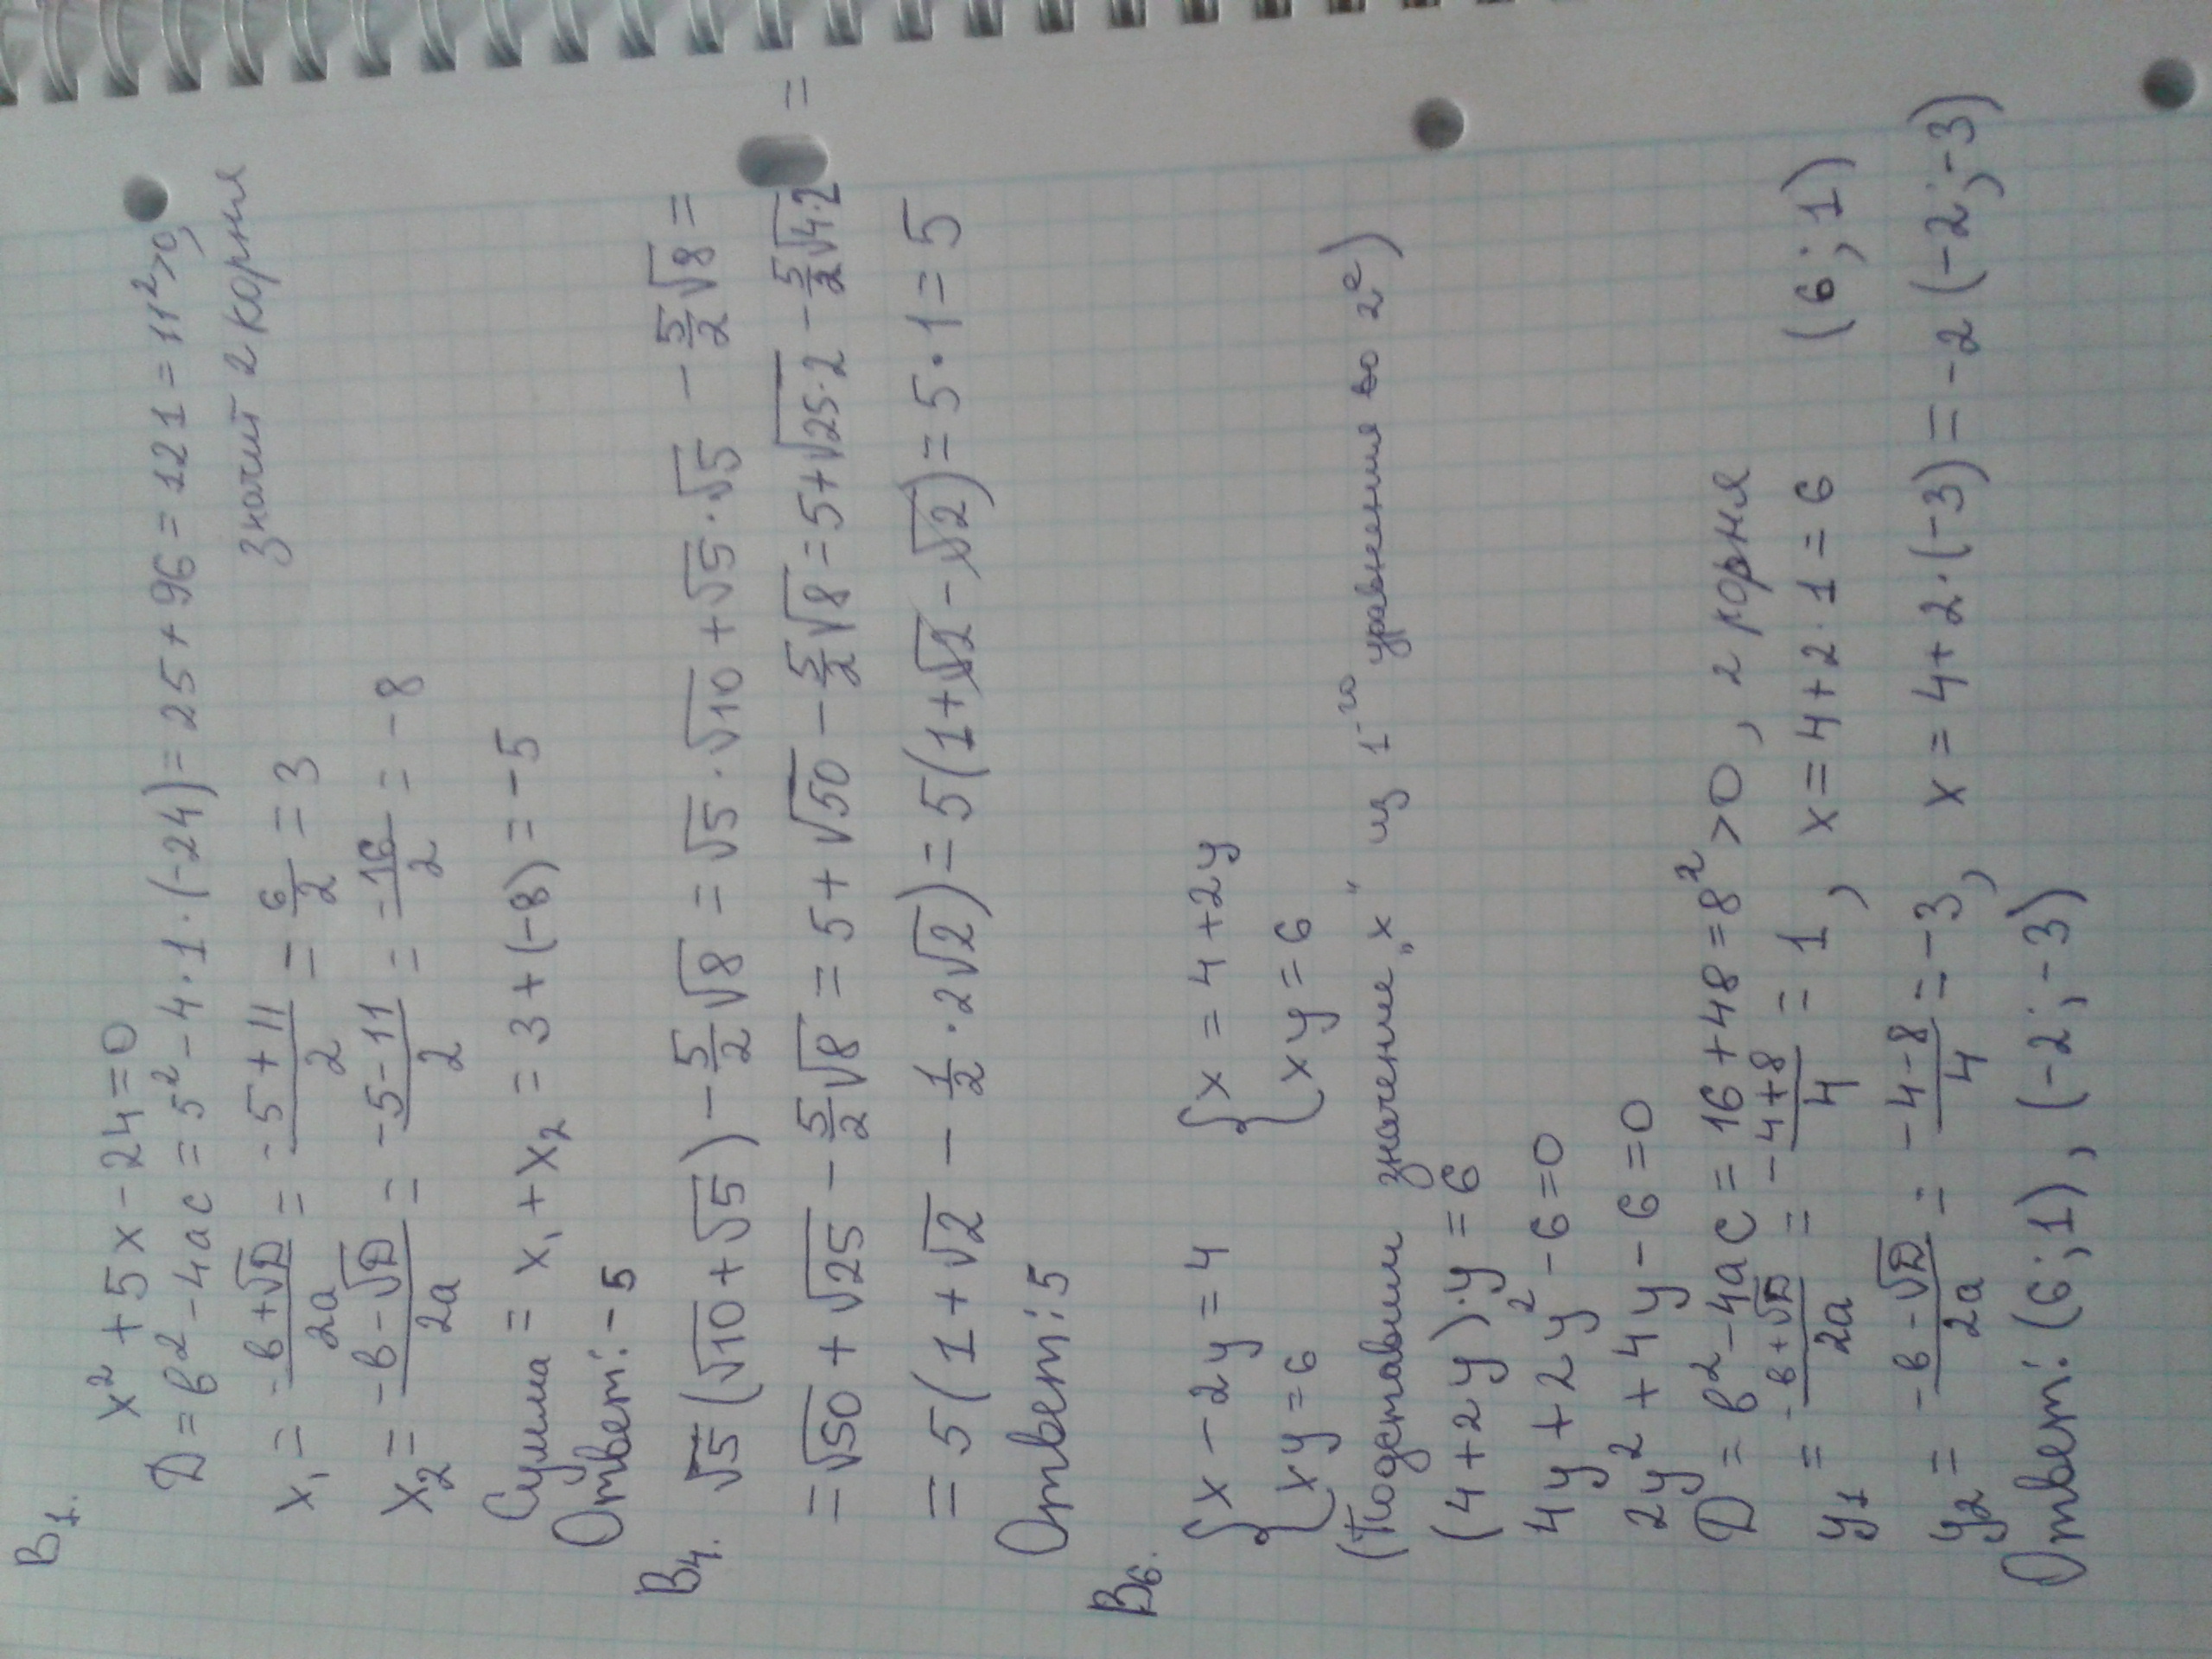 B1. x² + 5x - 24 = 0
D = b² - 4ac = 5² - 4·1·(-24) = 25 + 96 = 121 = 11² > 0,
значит 2 корня
x₁ = (-b + √D)/2a = (-5 + 11)/2 = 6/2 = 3
x₂ = (-b - √D)/2a = (-5 - 11)/2 = -16/2 = -8
Сумма = x₁ + x₂ = 3 + (-8) = -5
Ответ: -5
B4. √5(√10 + √5) - 5/2√8 = √5·√10 + √5·√5 - 5/2√8 =
= √50 + √25 - 5/2√8 = 5 + √50 - 5/2√8 = 5 + √25·2 - 5/2√4·2 =
= 5(1 + √2 - 1/2·2√2) = 5(1 + √2 - √2) = 5·1 = 5
Ответ: 5
B6. { x - 2y = 4 { x = 4 + 2y
{ xy = 6 { xy = 6
(Подставим значение „x" из 1-го уравнения во 2е)
(4 + 2y)·y = 6
4y + 2y² - 6 = 0
2y² + 4y - 6 = 0
D = b² - 4ac = 16 + 48 = 8² > 0, 2 корня
y₁ = (-b + √D)/2a = (-4 + 8)/4 = 1, x = 4 + 2·1 = 6 (6; 1)
y₂ = (-b - √D)/2a = (-4 - 8)/4 = -3, x = 4 + 2·(-3) = -2 (-2; -3)
Ответ: (6; 1), (-2; -3)